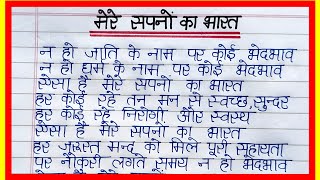 मेरे सपनों का भारत
न हो जाति के नाम पर कोई भेदभाव
न हो धर्म के नाम पर कोई भेदभाव
ऐसा है मेरे सपनों का भारत
हर कोई रहे तन मन से स्वच्छ, सुन्दर
हर कोई रहे निरोगी और स्वस्थ
ऐसा है मेरे सपनों का भारत
हर जरूरत मन्द को मिले पूरी सहायता
पर नौकरी लगते समय न हो भेदभाव